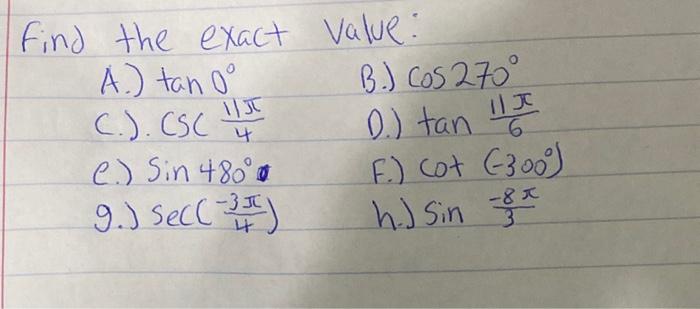 Find the exact value:
A.) tan 0° B.) Cos 270°
C.). CSC 11π/4 D.) tan 11π/6
e.) Sin 480° F.) Cot (-300°)
g.) Sec(-3π/4) h.) Sin -8π/3